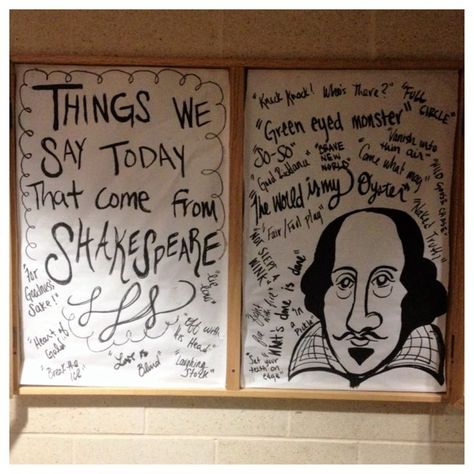 THINGS WE
SAY TODAY
That come from
SHAKESPEARE
"For
Goodness
Sake!"
"Heart of
Gold"
"Break the
ice"
"Love is
Blind"
"Off with
his Head"
"Laughing
Stock"
"Knock Knock! Who's There?"
"FULL
CIRCLE"
"Green eyed monster"
"Vanish into
thin air"
"So-So"
"Good Riddance"
"BRAVE
NEW
WORLD"
"Come what may"
"WILD GOOSE CHASE"
"The World is my Oyster"
"Fair/Foul play"
"Naked Truth"
"NOT SLEPT
WINK"
"What's done is done"
"In a
Pickle"
"Set your
teeth on
edge"